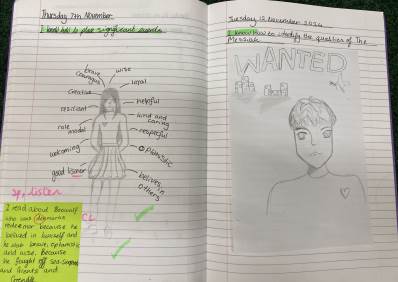 Thursday 7th November
I know how to plan significant events
brave
courageous
wise
loyal
creative
helpful
resilient
kind and
caring
role
model
respectful
optimistic
welcoming
good lisner
believes in
others
sp, listen
I read about Beowulf
who was
because he
belived in himself and
he was brave, optamistic
and wise. Because
he fought off sea-serpents
and Giants and
Grendle
CL
Tuesday 12 November 2024
I know how to identify the qualities of The
Messiah
WANTED